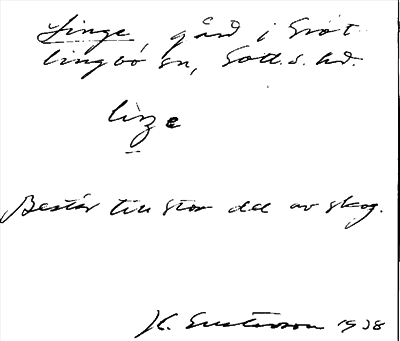 Linge, gård i Gröt
lingbo sn, Gotl. s. hd.
linge
Består till stor del av skog.
H. Gustavson 1938